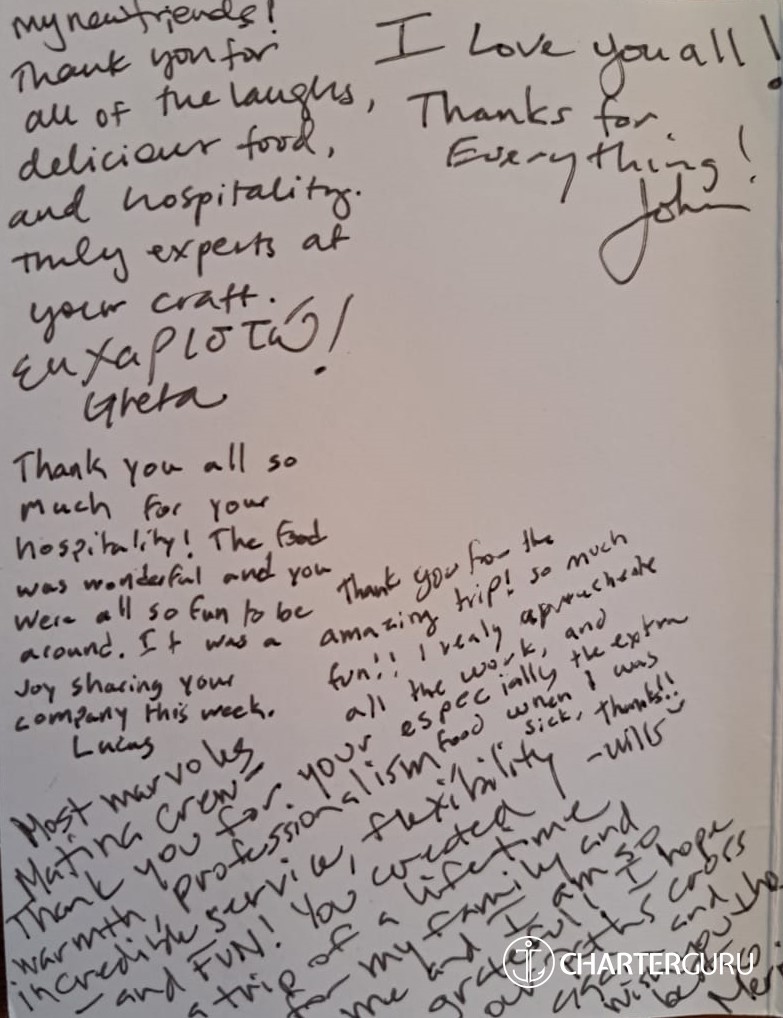 my new friends!
Thank you for
all of the laughs,
delicious food,
and hospitality.
Truly experts at
your craft.
Ευχαριστώ!
Greta
I Love you all!
Thanks for
Everything!
John
Thank you all so
much for your
hospitality! The food
was wonderful and you
were all so fun to be
around. It was a
Joy sharing your
company this week.
Lucas
Thank you for the
amazing trip! so much
fun!! I realy aprucheate
all the work, and
especially the extra
food when I was
sick, thanks!!
-Wills
Most marvolus
Matina Crew-
Thank you for your
warmth, professionalism
incredible service, flexibility
- and FUN! You created
a trip of a lifetime
for my family and
me and I am so
grateful! I hope
our paths cross
again and
wish you the
best.
CHARTERGURU